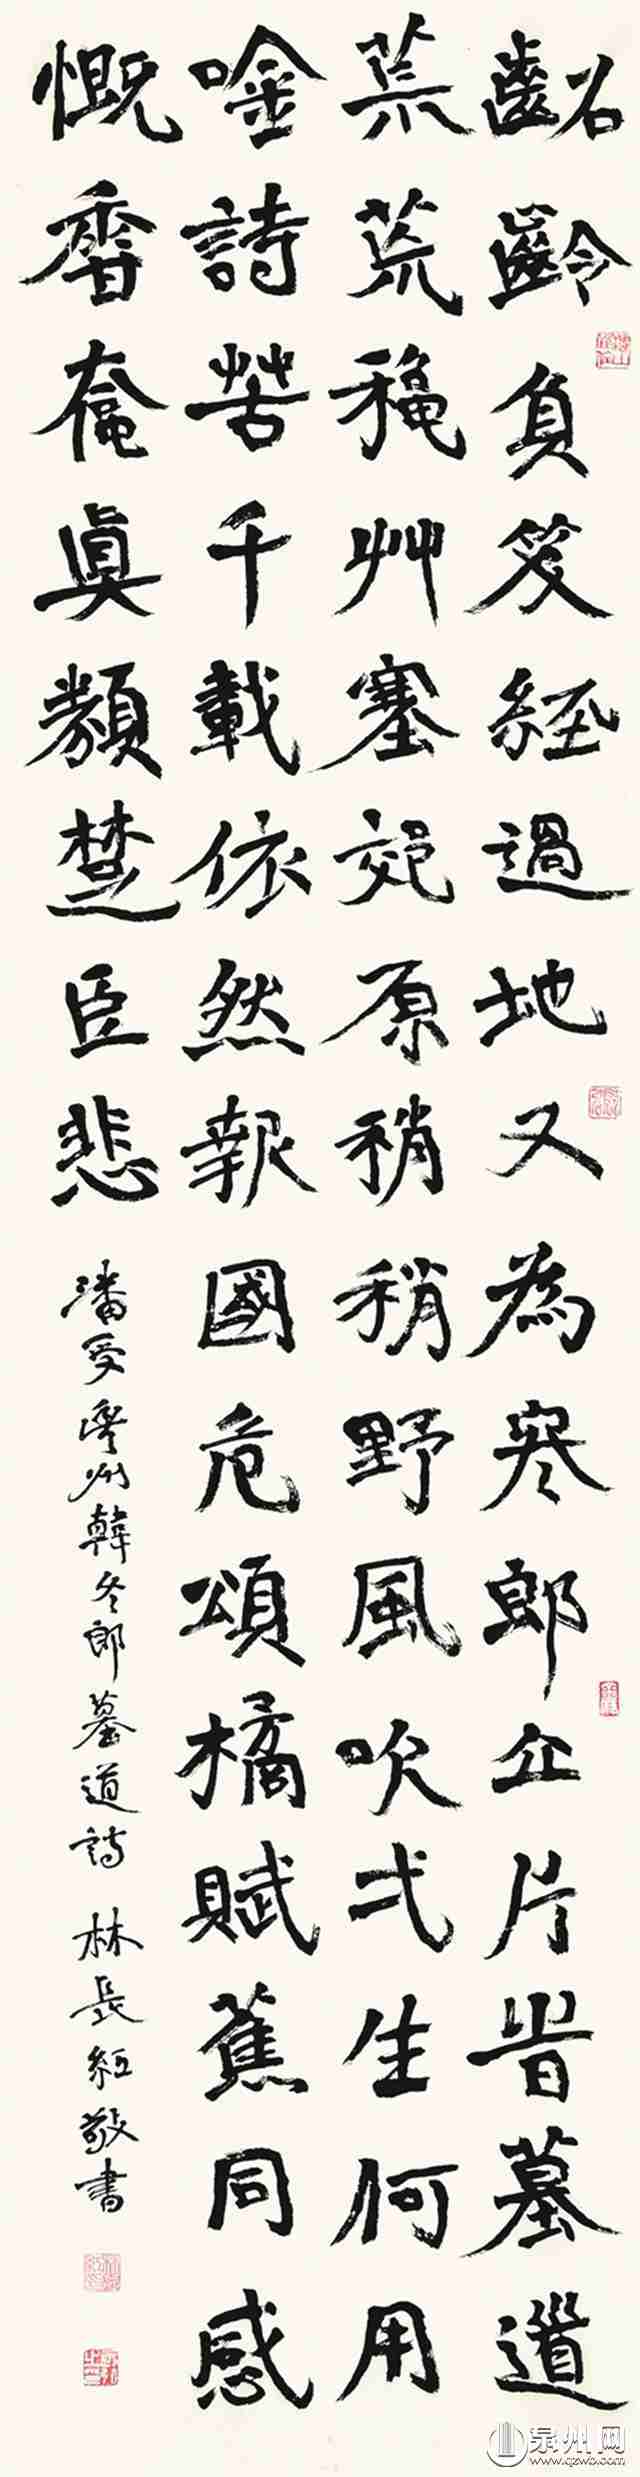 齠齡負笈經過地又為冬郎立片旹墓道
荒荒穐艸塞郊原稍稍野風吹弌生何用
唫詩苦千載依然報國危頌橘賦蕉同感
慨香奩眞類楚臣悲
潘受豐州韓冬郎墓道詩 林長紅敬書
泉州网
www.qzwb.com